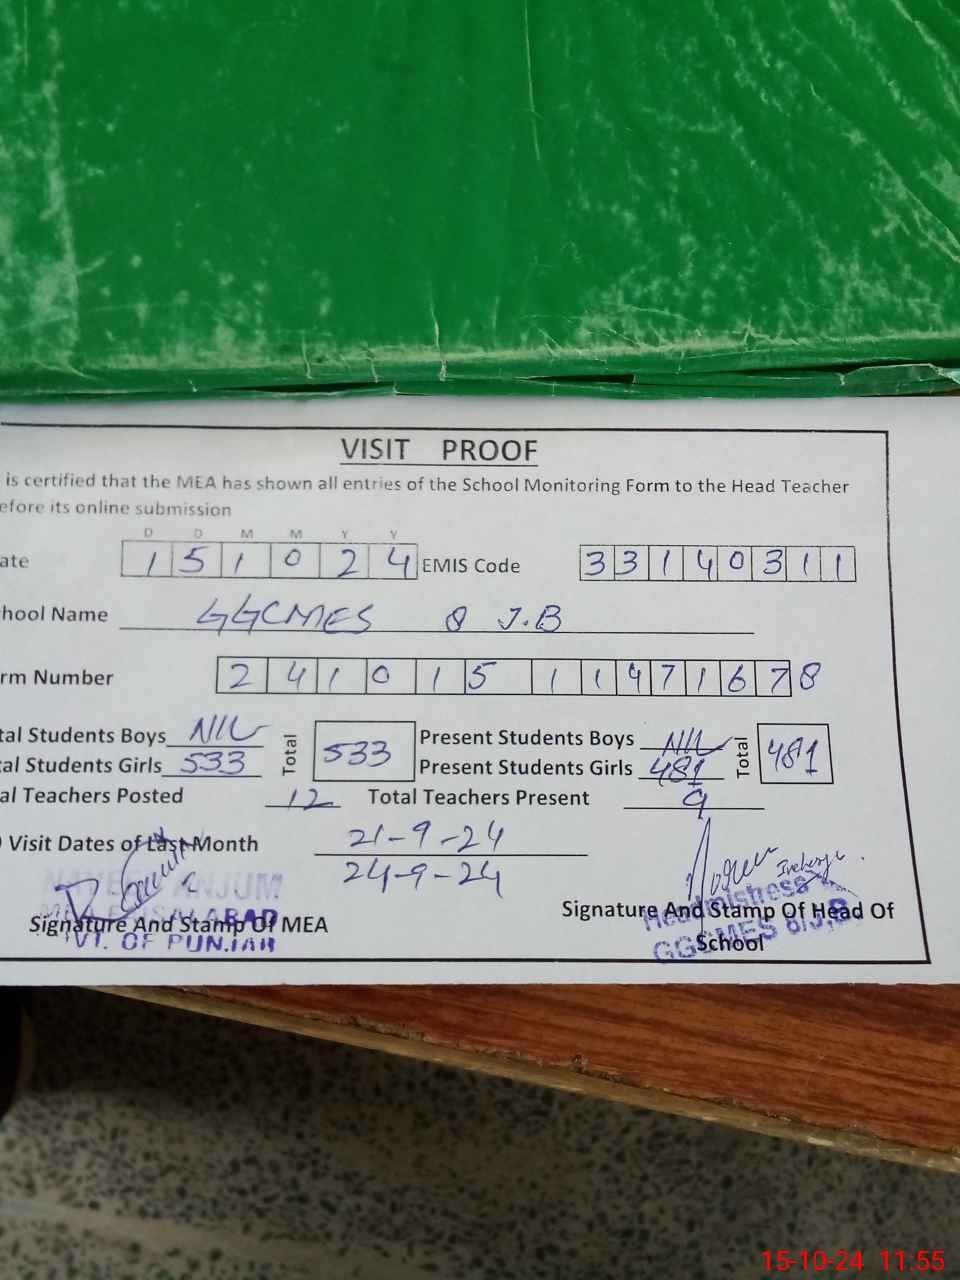 VISIT PROOF
is certified that the MEA has shown all entries of the School Monitoring Form to the Head Teacher
efore its online submission
D D M M Y Y
ate 1 5 1 0 2 4 EMIS Code 3 3 1 4 0 3 1 1
hool Name GGCMES 8 J.B
rm Number 2 4 1 0 1 5 1 1 4 7 1 6 7 8
tal Students Boys NIL Total 533 Present Students Boys NIL Total 481
al Students Girls 533 Present Students Girls 481
al Teachers Posted 12 Total Teachers Present 9
Visit Dates of Last Month 21-9-24
24-9-24
NAVEED ANJUM
Signature And Stamp Of MEA
VT. OF PUNJAB
Incharge
Headmistress
Signature And Stamp Of Head Of
School
GGCMES 8/J.B
15-10-24 11:55